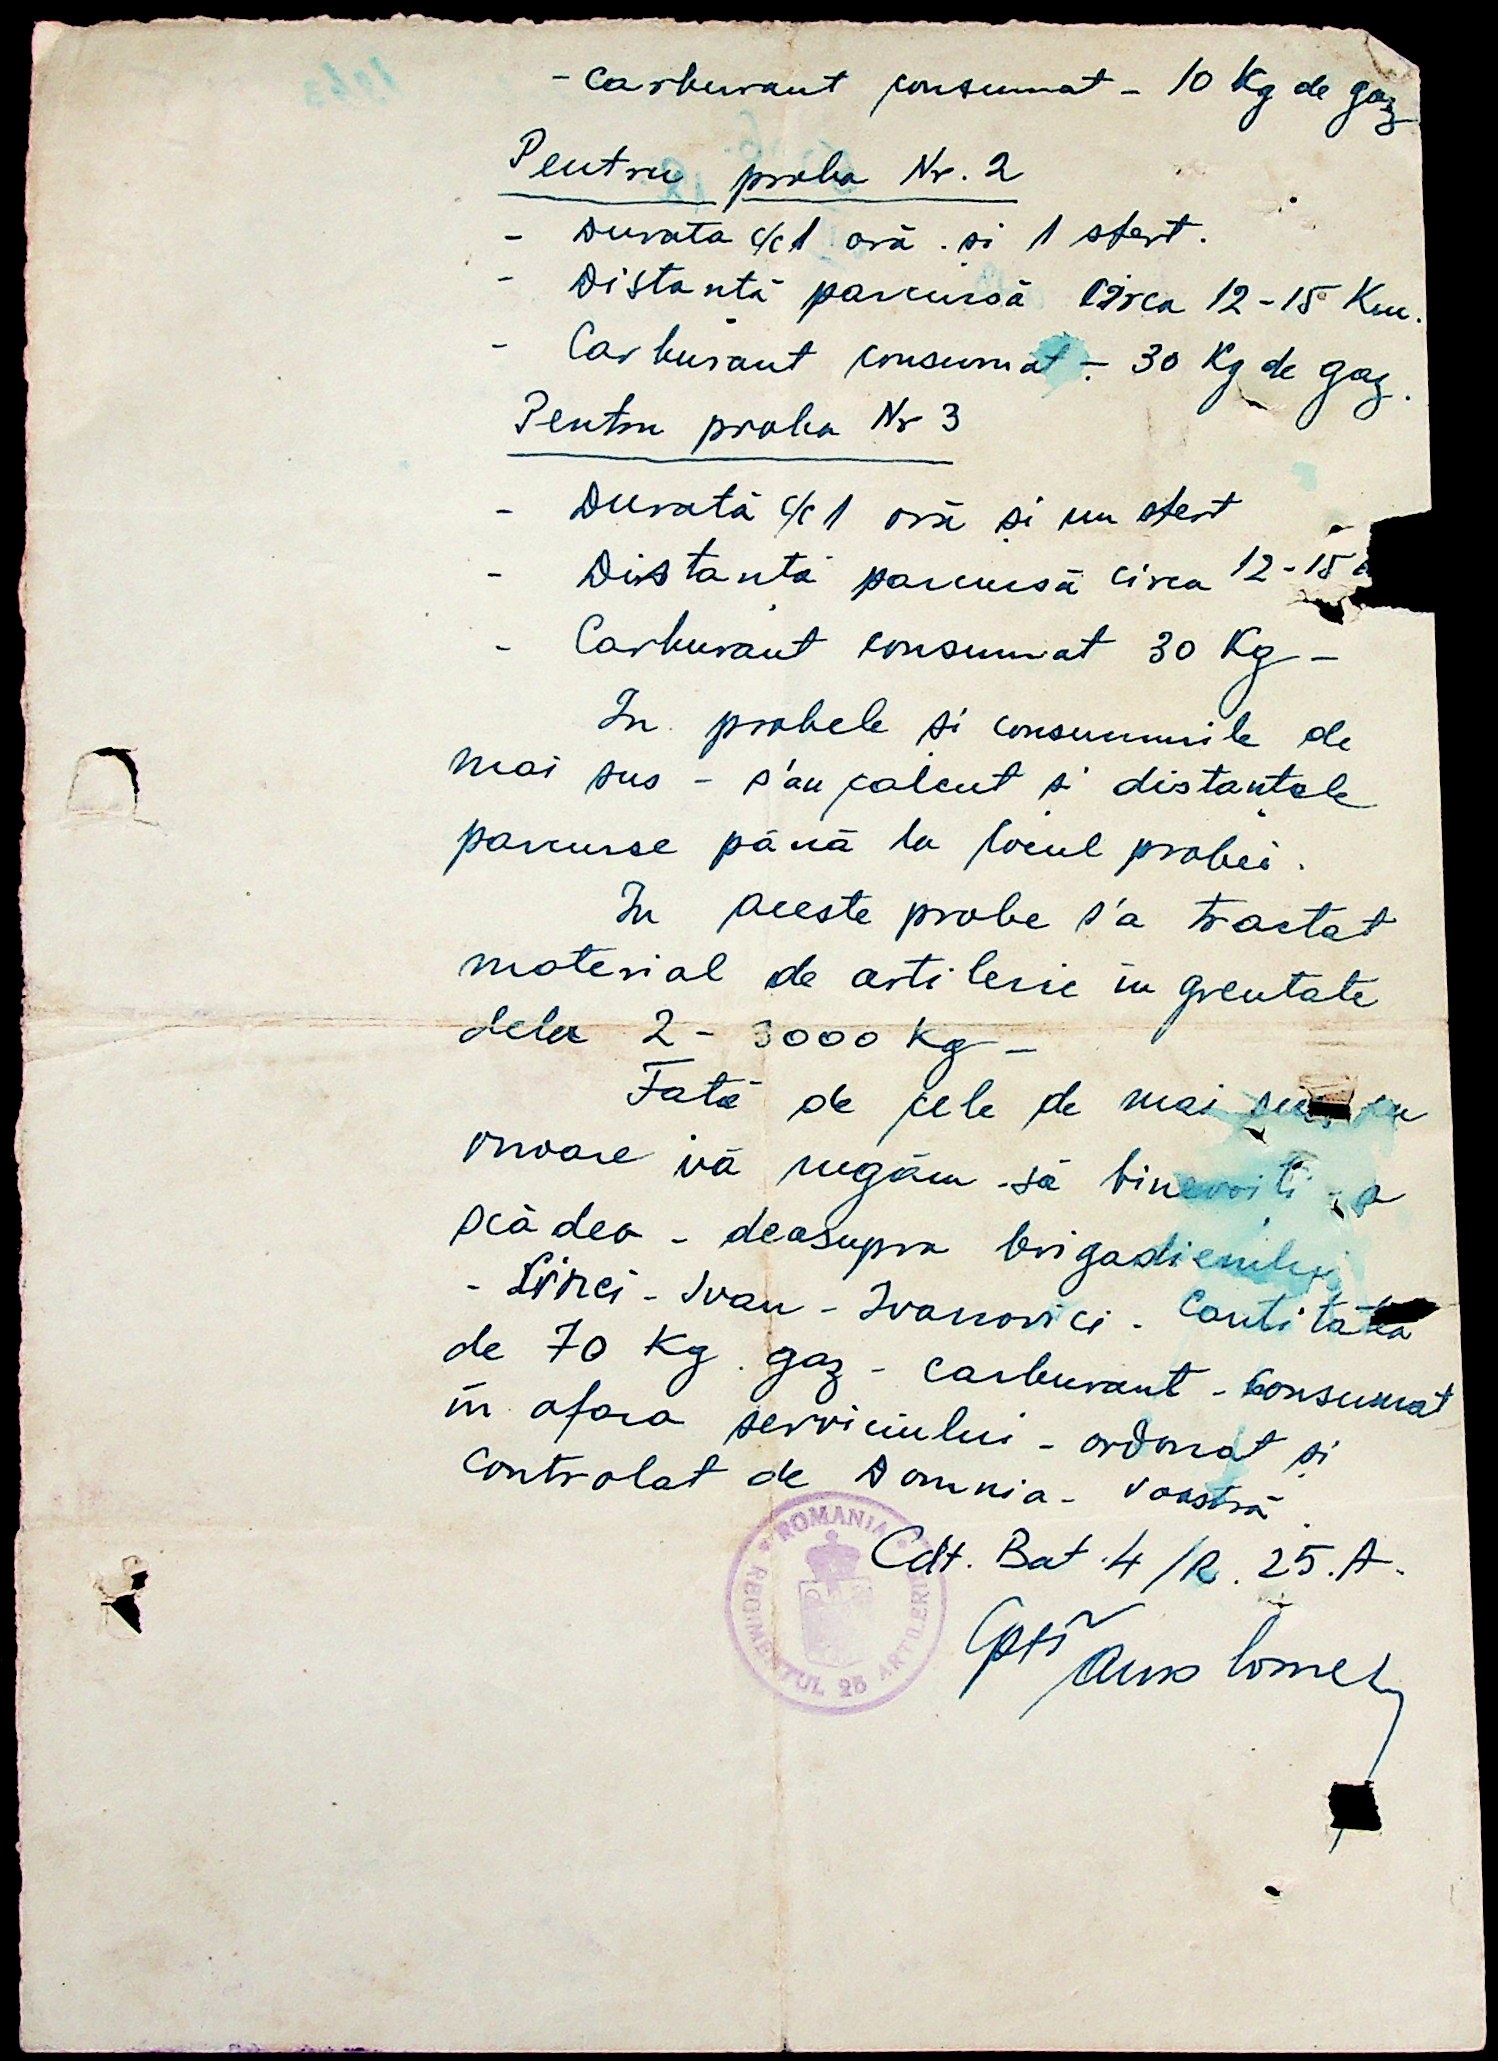 - Carburant consumat - 10 Kg de gaz
Pentru proba Nr. 2
- Durata c/c 1 oră și 1 sfert.
- Distanță parcursă circa 12-15 Km.
- Carburant consumat - 30 Kg de gaz.
Pentru proba Nr 3
- Durată c/c 1 oră și un sfert
- Distanță parcursă circa 12-15
- Carburant consumat 30 Kg -
In probele și consumurile de
mai sus - s'au calcut și distanțele
parcurse până la locul probei.
In aceste probe s'a tractat
material de artilerie in greutate
dela 2 - 3000 Kg -
Față de cele de mai sus cu
onoare vă rugăm - să binevoiți a
scădea - deasupra brigadierului
- Ivan - Ivanovici - Cantitatea
de 70 Kg. gaz - carburant - consumat
in afara serviciului - ordonat și
controlat de Domnia - voastră.
Cdt. Bat. 4 / R. 25. A.
Cpt.
ROMANIA
REGIMENTUL 25 ARTILERIE